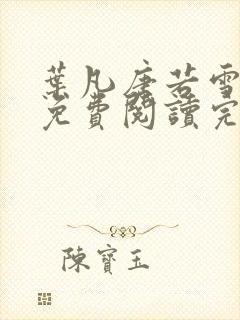 葉凡唐若雪
免費閱讀完
陳寶玉